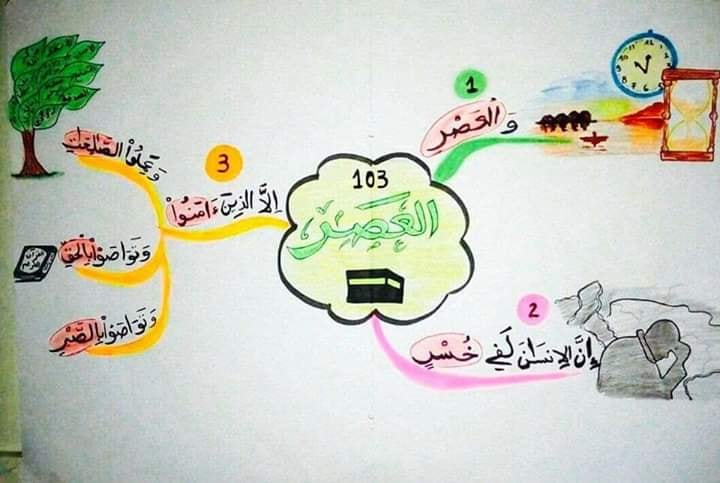 103
العَصْرِ
1
وَالْعَصْرِ
2
إِنَّ الاِنسَٰنَ لَفِي خُسْرٍ
3
إِلاَّ الذِينَ ءَامَنُواْ
وَعَمِلُواْ الصَّٰلِحَٰتِ
وَتَوَاصَوْاْ بِالْحَقِّ
وَتَوَاصَوْاْ بِالصَّبْرِ